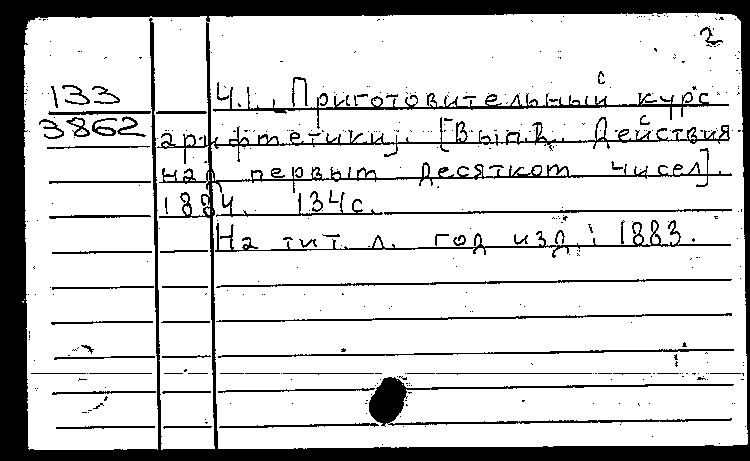 2
133
3862
Ч.1. Приготовительный курс
арифметики]. [Вып.2. Действия
над первым десятком чисел].
1884. 134с.
На тит. л. год изд.: 1883.